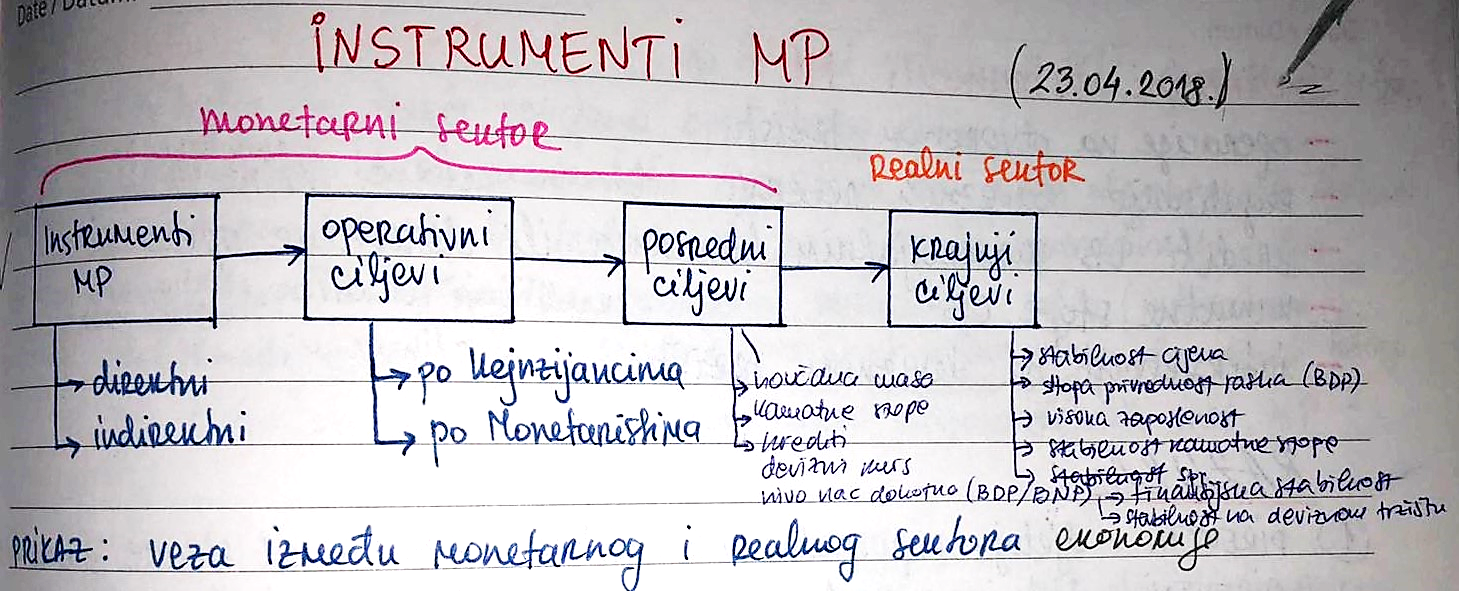 Date / Datum
INSTRUMENTI MP
(23.04.2018.)
monetarni sektor
Realni sektor
Instrumenti
MP
operativni
ciljevi
posredni
ciljevi
krajnji
ciljevi
direktni
indirektni
po Kejnzijancima
po Monetaristima
novčana masa
kamatne stope
krediti
devizni kurs
nivo nac dohotka (BDP/BNP)
stabilnost cijena
stopa privrednost rasta (BDP)
visoka zaposlenost
stabilnost kamatne stope
stabilnost spr
finansijska stabilnost
stabilnost na deviznom tržištu
PRIKAZ: veza između monetarnog i realnog sektora ekonomije